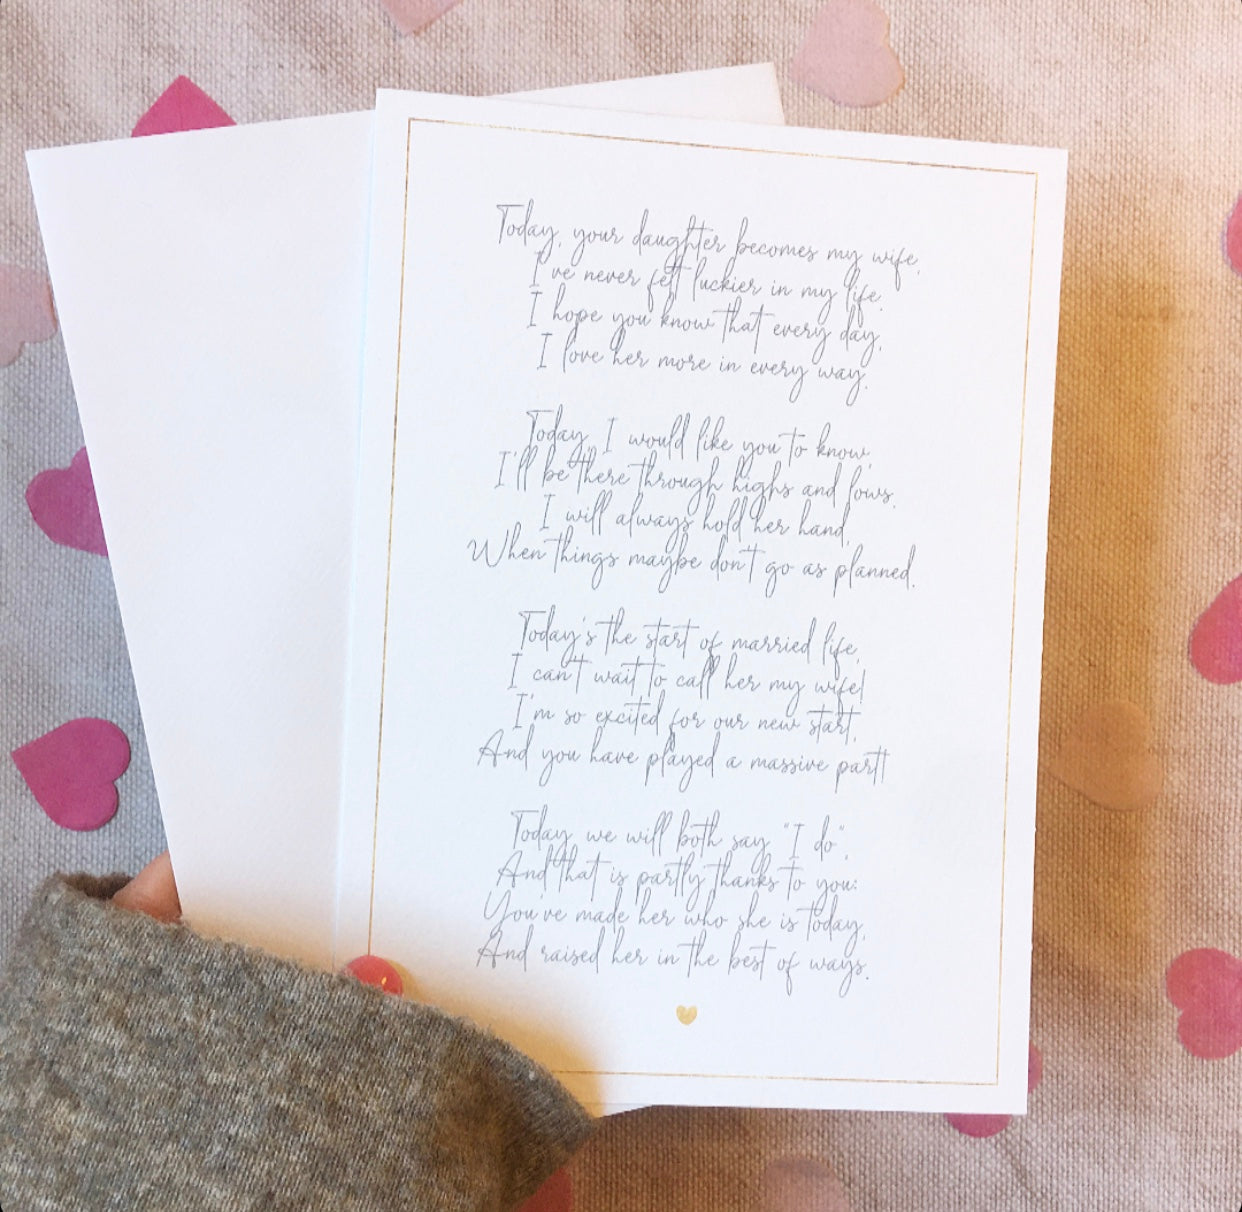 Today, your daughter becomes my wife,
I've never felt luckier in my life.
I hope you know that every day,
I love her more in every way.
Today, I would like you to know,
I'll be there through highs and lows.
I will always hold her hand,
When things maybe don't go as planned.
Today's the start of married life,
I can't wait to call her my wife!
I'm so excited for our new start,
And you have played a massive part!
Today we will both say "I do",
And that is partly thanks to you:
You've made her who she is today,
And raised her in the best of ways.